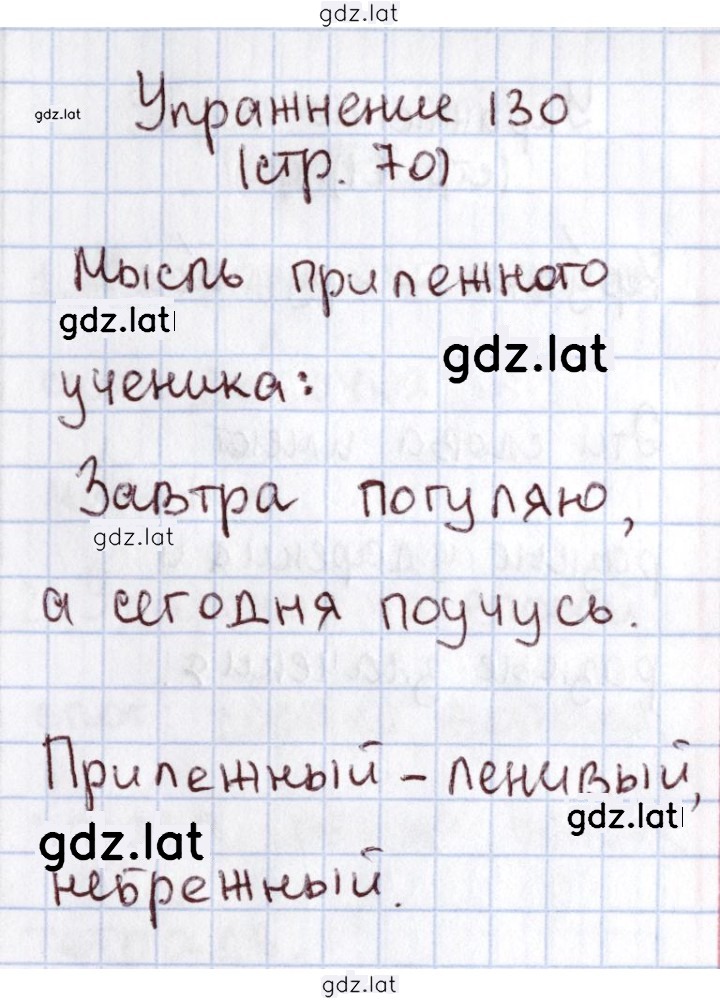 gdz.lat
gdz.lat
Упражнение 130
(стр. 70)
Мысль прилежного
gdz.lat
gdz.lat
ученика:
Завтра погуляю,
gdz.lat
а сегодня поучусь.
Прилежный – ленивый,
gdz.lat
gdz.lat
небрежный.
gdz.lat